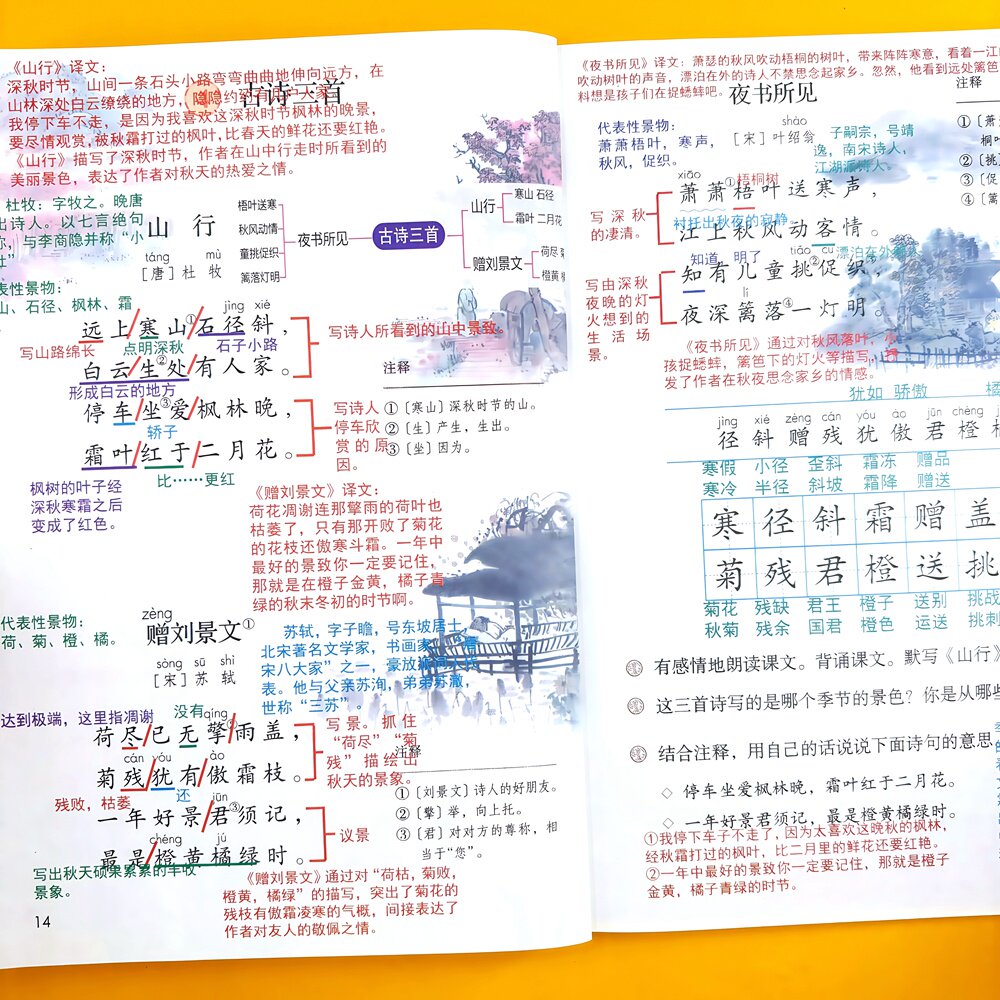 《山行》译文:
深秋时节,山间一条石头小路弯弯曲曲地伸向远方,在
山林深处白云缭绕的地方,隐隐约约
我停下车不走,是因为我喜欢这深秋时节枫林的晚景,
要尽情观赏,被秋霜打过的枫叶,比春天的鲜花还要红艳。
《山行》描写了深秋时节,作者在山中行走时所看到的
美丽景色,表达了作者对秋天的热爱之情。
古诗三首
杜牧:字牧之。晚唐
出诗人。以七言绝句
称,与李商隐并称“小
杜”
山 行
táng mù
[唐]杜 牧
梧叶送寒
秋风动情
童挑促织
篱落灯明
夜书所见
古诗三首
山行
寒山 石径
霜叶 二月花
赠刘景文
荷尽
橙黄
表性景物:
山、石径、枫林、霜
jìng xié
远上寒山①石径斜,
写山路绵长 点明深秋 石子小路
白云生处②有人家。
形成白云的地方
写诗人所看到的山中景致。
停车坐③爱枫林晚,
轿子
霜叶红于二月花。
比……更红
写诗人
停车欣
赏的原
因。
枫树的叶子经
深秋寒霜之后
变成了红色。
注释
①〔寒山〕深秋时节的山。
②〔生〕产生,生出。
③〔坐〕因为。
《赠刘景文》译文:
荷花凋谢连那擎雨的荷叶也
枯萎了,只有那开败了菊花
的花枝还傲寒斗霜。一年中
最好的景致你一定要记住,
那就是在橙子金黄,橘子青
绿的秋末冬初的时节啊。
代表性景物:
荷、菊、橙、橘。
zèng
赠刘景文①
sòng sū shì
[宋]苏 轼
苏轼,字子瞻,号东坡居士,
北宋著名文学家,书画家,“唐
宋八大家”之一,豪放派词人代
表。他与父亲苏洵,弟弟苏澈,
世称“三苏”。
达到极端,这里指凋谢 没有
qíng
荷尽已无擎②雨盖,
cán yóu ào
菊残犹有傲霜枝。
残败,枯萎 还
写景。抓住
“荷尽”“菊
残”描绘出
秋天的景象。
jūn
一年好景君③须记,
chéng jú
最是橙黄橘绿时。
议景
写出秋天硕果累累的丰收
景象。
注释
①〔刘景文〕诗人的好朋友。
②〔擎〕举,向上托。
③〔君〕对对方的尊称,相
当于“您”。
《赠刘景文》通过对“荷枯,菊败,
橙黄,橘绿”的描写,突出了菊花的
残枝有傲霜凌寒的气概,间接表达了
作者对友人的敬佩之情。
14
《夜书所见》译文:萧瑟的秋风吹动梧桐的树叶,带来阵阵寒意,看着一江
吹动树叶的声音,漂泊在外的诗人不禁思念起家乡。忽然,他看到远处篱笆
料想是孩子们在捉蟋蟀吧。
夜书所见
注释
代表性景物:
萧萧梧叶,寒声,
秋风,促织。
shào
[宋]叶绍翁
子嗣宗,号靖
逸,南宋诗人,
江湖派诗人。
①〔萧
桐叶
②〔挑
③〔促
④〔篱
xiāo
①梧桐树
萧萧梧叶送寒声,
衬托出秋夜的寂静
江上秋风动客情。
写深秋
的凄清。
知道,明了
tiǎo cù
漂泊在外
知有儿童挑②促织,
lí
夜深篱落④一灯明。
写由深秋
夜晚的灯
火想到的
生活场
景。
《夜书所见》通过对秋风落叶,小
孩捉蟋蟀,篱笆下的灯火等描写,
发了作者在秋夜思念家乡的情感。
犹如 骄傲 橘
jìng xié zèng cán yóu ào jūn chéng
径斜赠残犹傲君橙
寒假 小径 歪斜 霜冻 赠品
寒冷 半径 斜坡 霜降 赠送
寒径斜霜赠盖
菊残君橙送挑
菊花 残缺 君王 橙子 送别 挑战
秋菊 残余 国君 橙色 运送 挑刺
有感情地朗读课文。背诵课文。默写《山行》
这三首诗写的是哪个季节的景色?你是从哪些
结合注释,用自己的话说说下面诗句的意思
◇ 停车坐爱枫林晚,霜叶红于二月花。
◇ 一年好景君须记,最是橙黄橘绿时。
①我停下车子不走了,因为太喜欢这晚秋的枫林,
经秋霜打过的枫叶,比二月里的鲜花还要红艳。
②一年中最好的景致你一定要记住,那就是橙子
金黄,橘子青绿的时节。